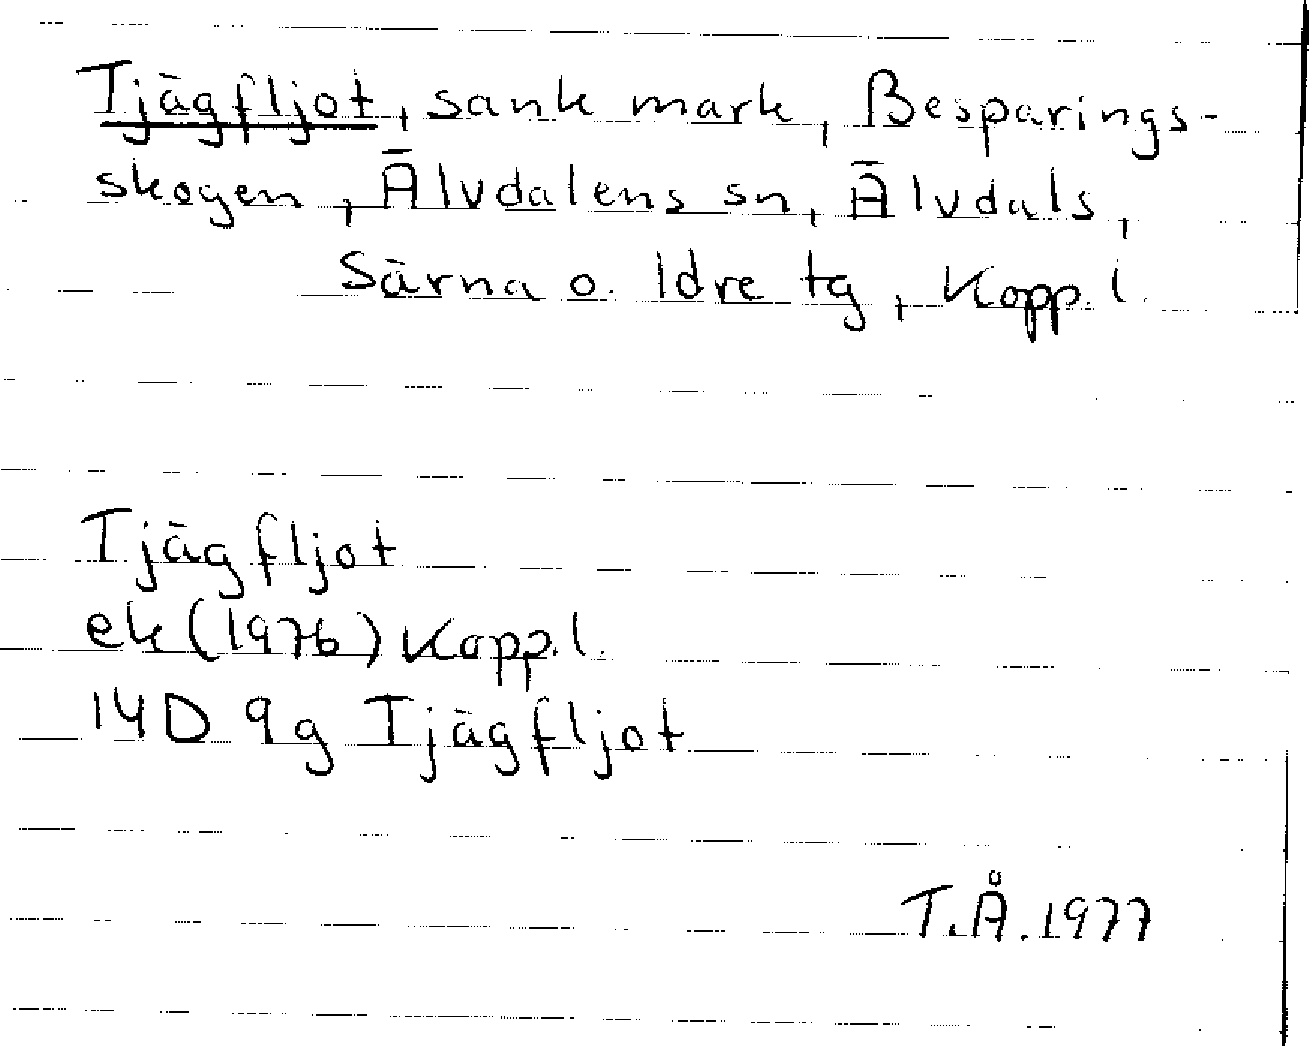 Tjägfljot, sank mark, Besparings-
skogen, Älvdalens sn, Älvdals,
Särna o. Idre tg, Kopp. l.
Tjägfljot
ek (1976) Kopp. l.
14D 9g Tjägfljot
T.Å. 1977